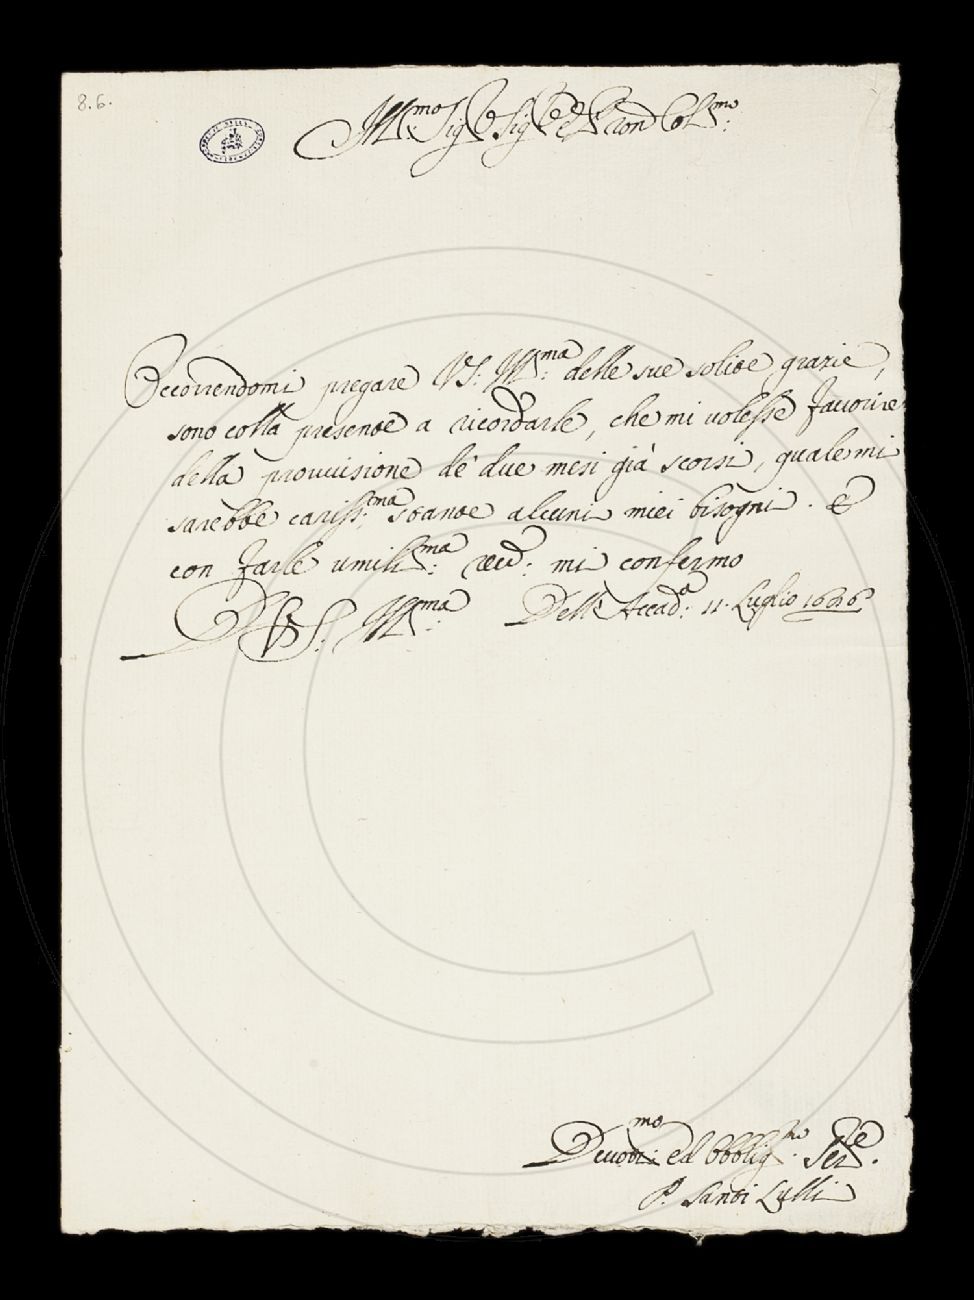 8.6.
Ill.mo Sig.re Sig.re e P.ron Col.mo:
Occorrendomi pregare VS: Ill.ma: delle sue solite grazie,
sono colla presente a ricordarle, che mi volesse favorire
della provvisione de' due mesi già scorsi, quale mi
sarebbe cariss:ma stante alcuni miei bisogni. E
con farle umiliss.ma: rev.: mi confermo
D VS: Ill.ma: Dell'Accad.a: 11. Luglio
Devot:mo ed Obblig.mo Ser.e.
P. Santi Lulli